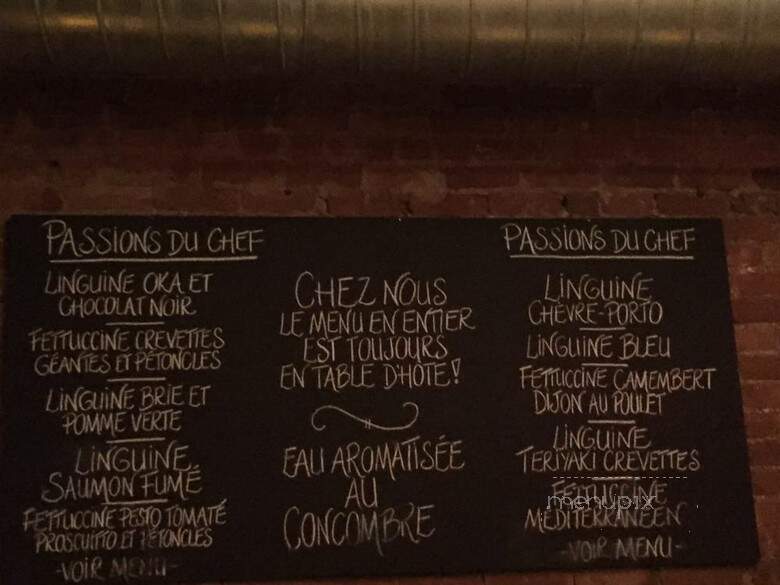 PASSIONS DU CHEF
LINGUINE OKA ET
CHOCOLAT NOIR
FETTUCCINE CREVETTES
GÉANTES ET PÉTONCLES
LINGUINE BRIE ET
POMME VERTE
LINGUINE
SAUMON FUMÉ
FETTUCCINE PESTO TOMATÉ
PROSCUITTO ET PÉTONCLES
-VOIR MENU-
CHEZ NOUS
LE MENU EN ENTIER
EST TOUJOURS
EN TABLE D'HÔTE!
EAU AROMATISÉE
AU
CONCOMBRE
PASSIONS DU CHEF
LINGUINE
CHÈVRE-PORTO
LINGUINE BLEU
FETTUCCINE CAMEMBERT
DIJON AU POULET
LINGUINE
TERIYAKI CREVETTES
FETTUCCINE
MÉDITERRANÉEN
-VOIR MENU-
menupix